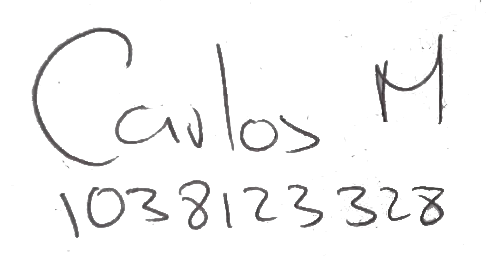 Carlos M
1038123328